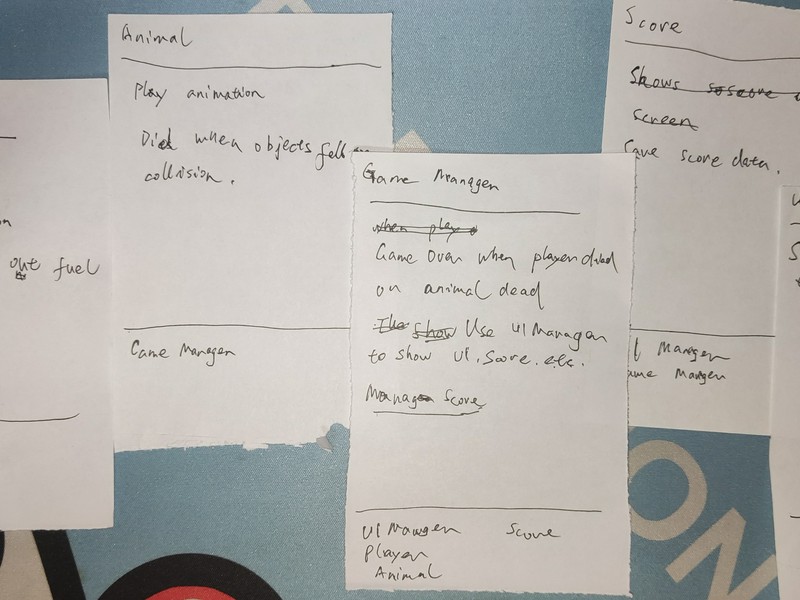 out fuel
Animal
Play animation
Died when objects fell on
collision.
Game Manager
Game Manager
when play
Game Over when player died
or animal dead
The show Use UI Manager
to show UI, Score, etc.
Manage Score
UI Manager Score
Player
Animal
Score
Shows score
screen
Save score data.
UI Manager
Game Manager
ON